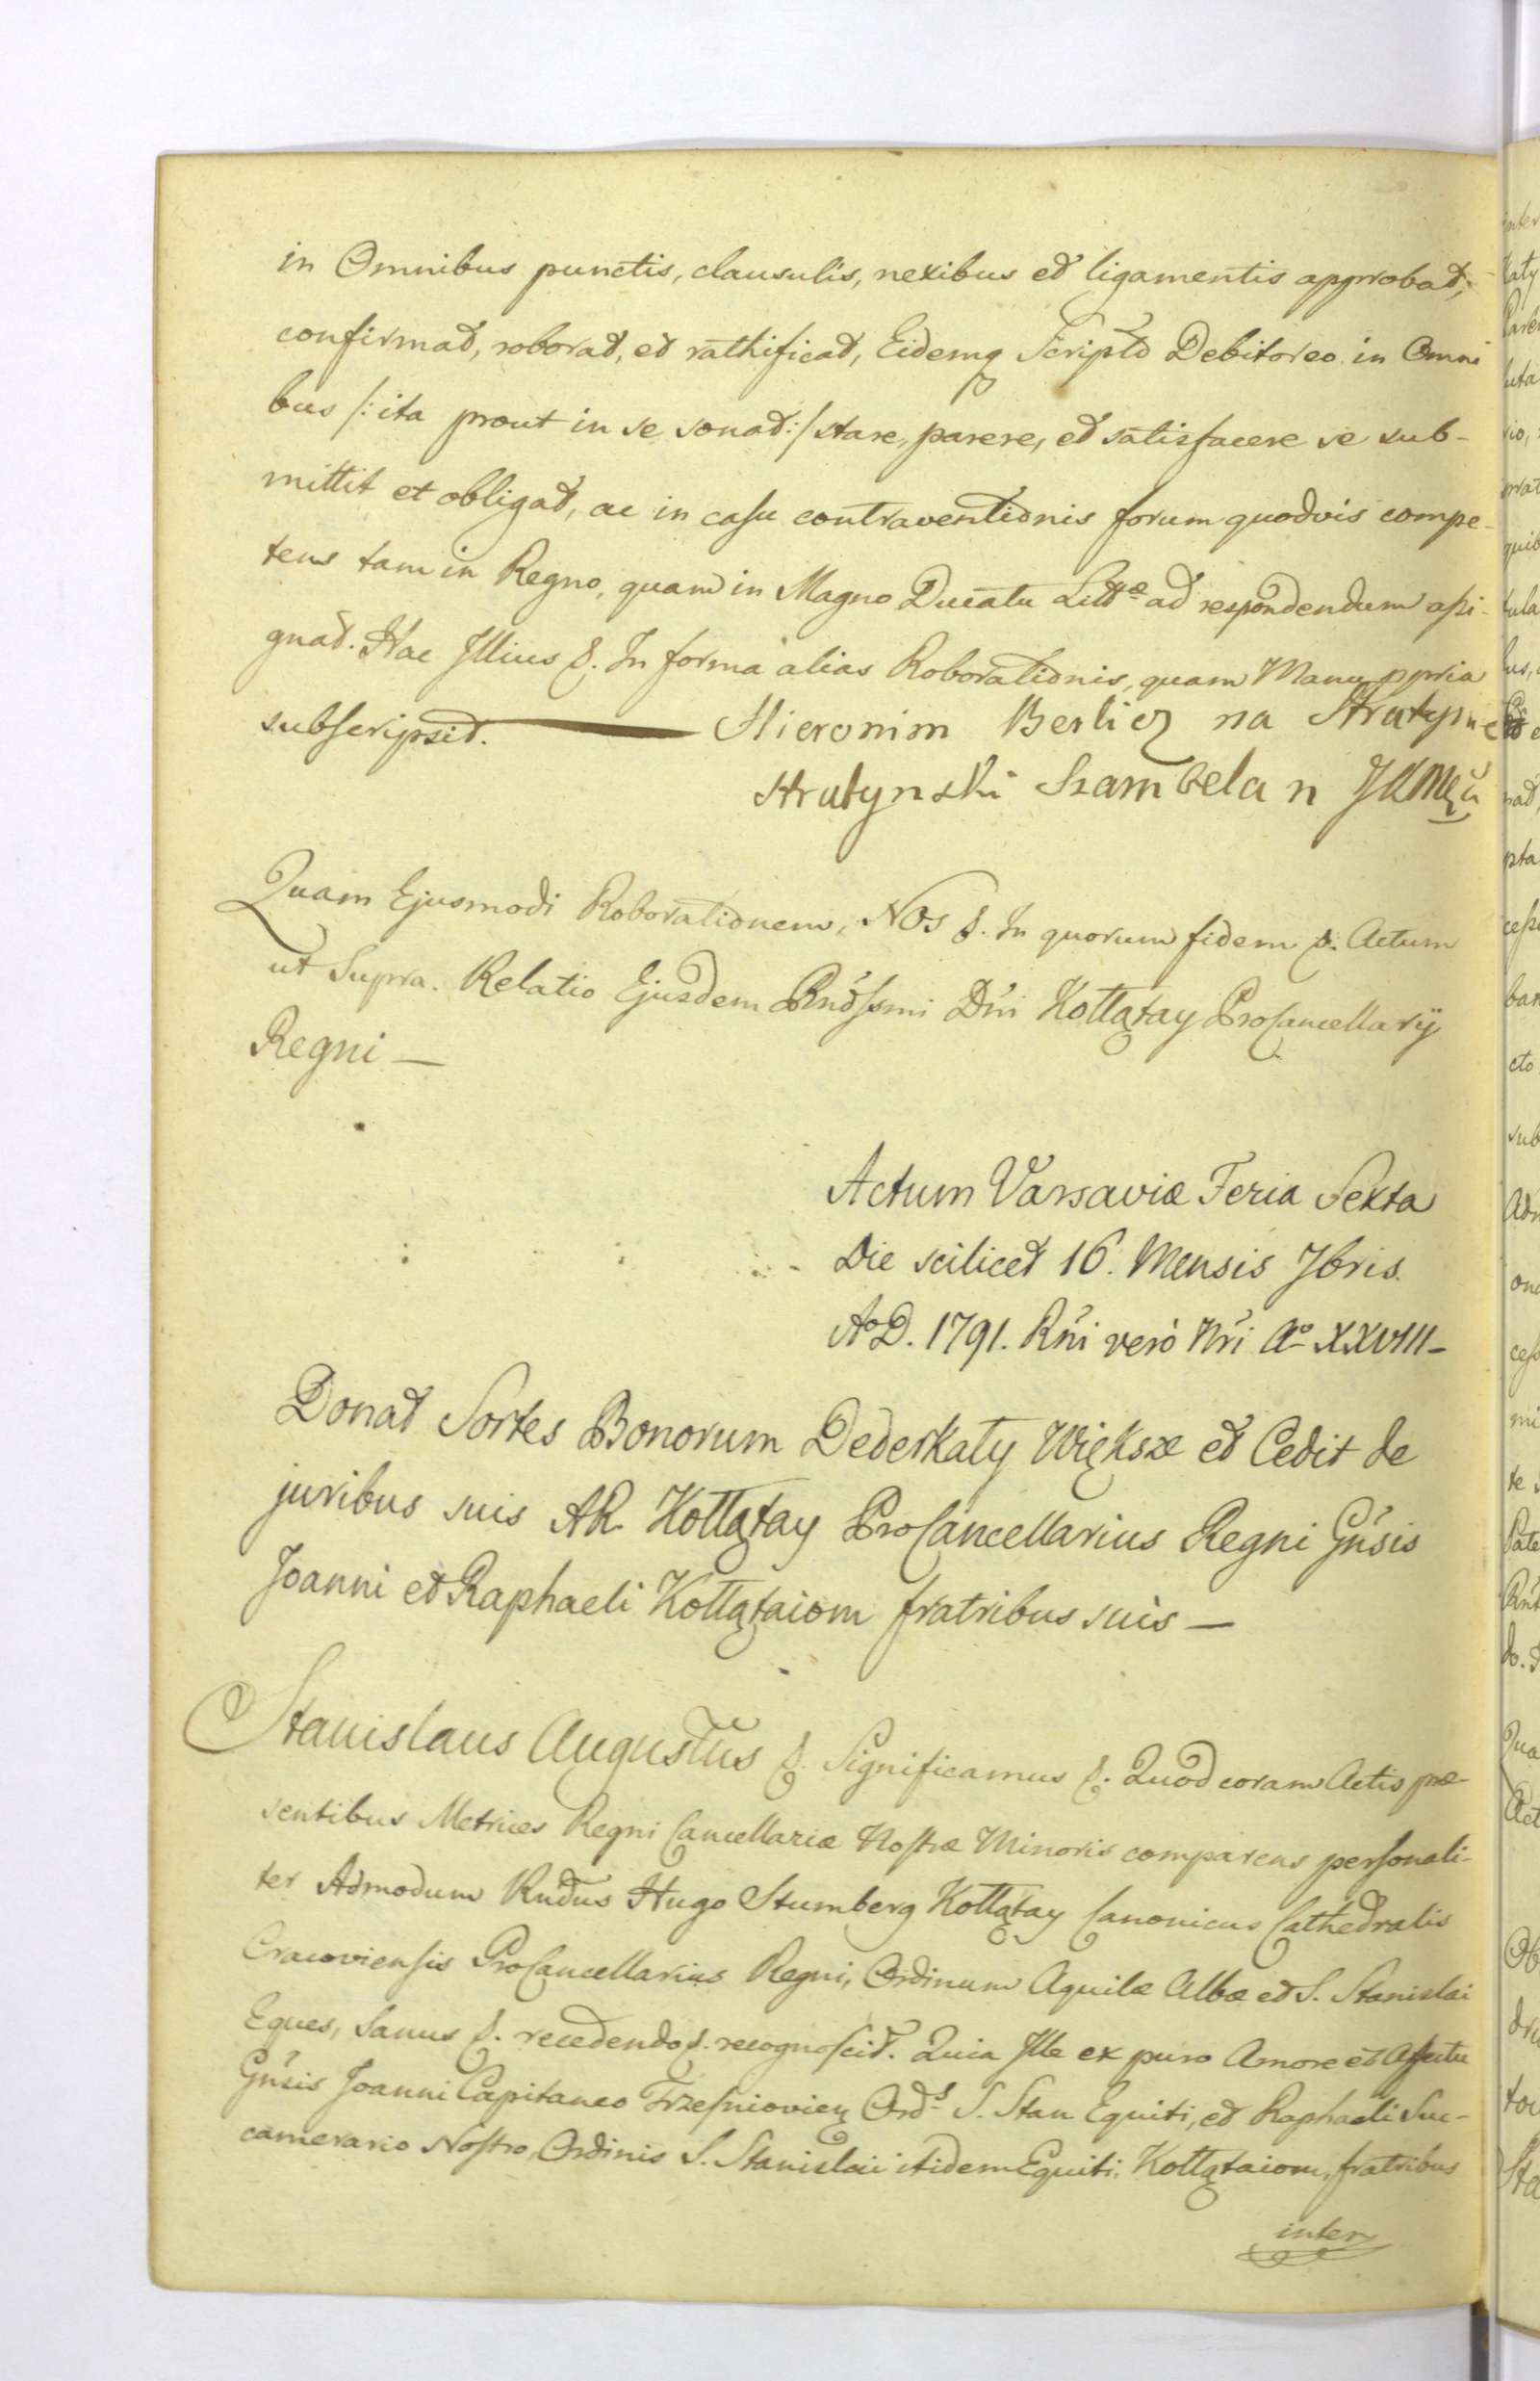 in Omnibus punctis, clausulis, nexibus et ligamentis approbat,
confirmat, roborat, et rathificat, Eidemq Scripto Debitoreo in Omni
bus /: ita prout in se sonat :/ stare, parere, et satisfacere se sub-
mittit et obligat, ac in casu contraventionis forum quodvis compe-
tens tam in Regno, quam in Magno Ducatu Littæ ad respondendum assi-
gnat. Hac Illius &. In forma alias Roborationis, quam Manu ppria
subscripsit. — Hieronim Berlicz na Strutyn
Strutynski Szambelan JKMci
Quam Ejusmodi Roborationem, Nos &. In quorum fidem &. Actum
ut Supra. Relatio Ejusdem Rndssmi Dni Kołłątay ProCancellarÿ
Regni —
Actum Varsaviæ Feria Sexta
Die scilicet 16. Mensis 7bris.
Ao D. 1791. Rni verò Nri Ao XXVIII-
Donat Sortes Bonorum Dederkały Większe et Cedit de
juribus suis AR Kołłątay ProCancellarius Regni Gnsis
Joanni et Raphaeli Kołłątaiom fratribus suis —
Stanislaus Augustus &. Significamus &. Quod coram Actis præ-
sentibus Metrices Regni Cancellariæ Nostræ Minoris comparens personali-
ter Admodum Rndus Hugo Stumberg Kołłątay Canonicus Cathedralis
Cracoviensis ProCancellarius Regni, Ordinum Aquilæ Albæ et S. Stanislai
Eques, Sanus &. recedendo &. recognoscit. Quia Ille ex puro Amore et Affectu
Gnsis Joanni Capitaneo Trzesniovien Ords S. Stan Equiti, et Raphaeli Suc-
camerario Nostro, Ordinis S. Stanislai itidem Equiti, Kołłątaiom, fratribus
inter